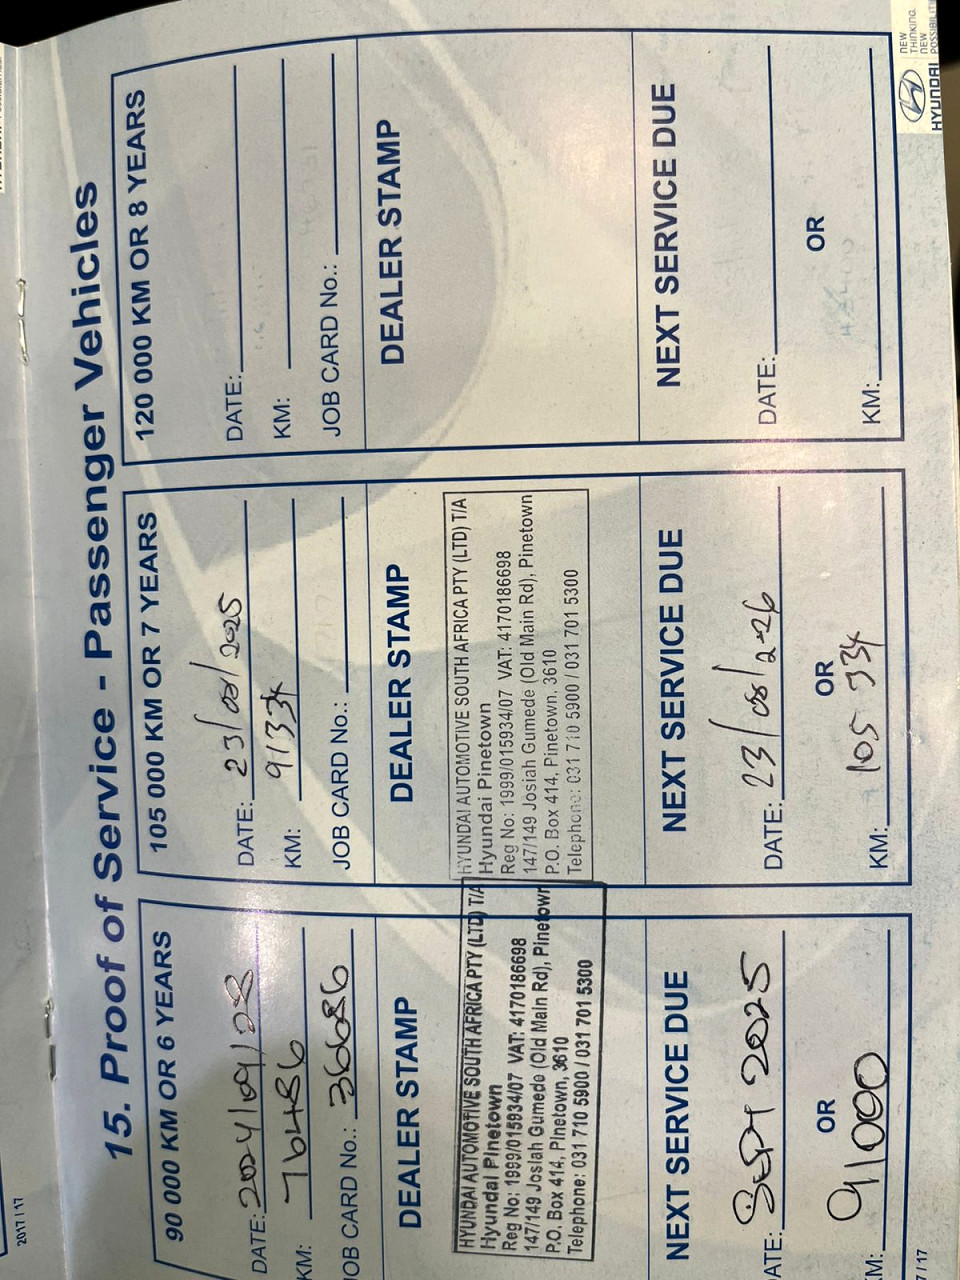 15. Proof of Service - Passenger Vehicles
90 000 KM OR 6 YEARS
DATE: 2024/09/28
KM: 76486
JOB CARD No.: 366686
DEALER STAMP
HYUNDAI AUTOMOTIVE SOUTH AFRICA PTY (LTD) T/A
Hyundai Pinetown
Reg No: 1999/015934/07 VAT: 4170186698
147/149 Josiah Gumede (Old Main Rd), Pinetown
P.O. Box 414, Pinetown, 3610
Telephone: 031 710 5900 / 031 701 5300
NEXT SERVICE DUE
DATE: SEPT 2025
OR
KM: 91000
105 000 KM OR 7 YEARS
DATE: 23/08/2025
KM: 91334
JOB CARD No.:
DEALER STAMP
HYUNDAI AUTOMOTIVE SOUTH AFRICA PTY (LTD) T/A
Hyundai Pinetown
Reg No: 1999/015934/07 VAT: 4170186698
147/149 Josiah Gumede (Old Main Rd), Pinetown
P.O. Box 414, Pinetown, 3610
Telephone: 031 710 5900 / 031 701 5300
NEXT SERVICE DUE
DATE: 23/08/2026
OR
KM: 105 334
120 000 KM OR 8 YEARS
DATE:
KM:
JOB CARD No.:
DEALER STAMP
NEXT SERVICE DUE
DATE:
OR
KM:
NEW
THINKING.
NEW
POSSIBILITI
HYUNDAI
2017 / 17
7 / 17